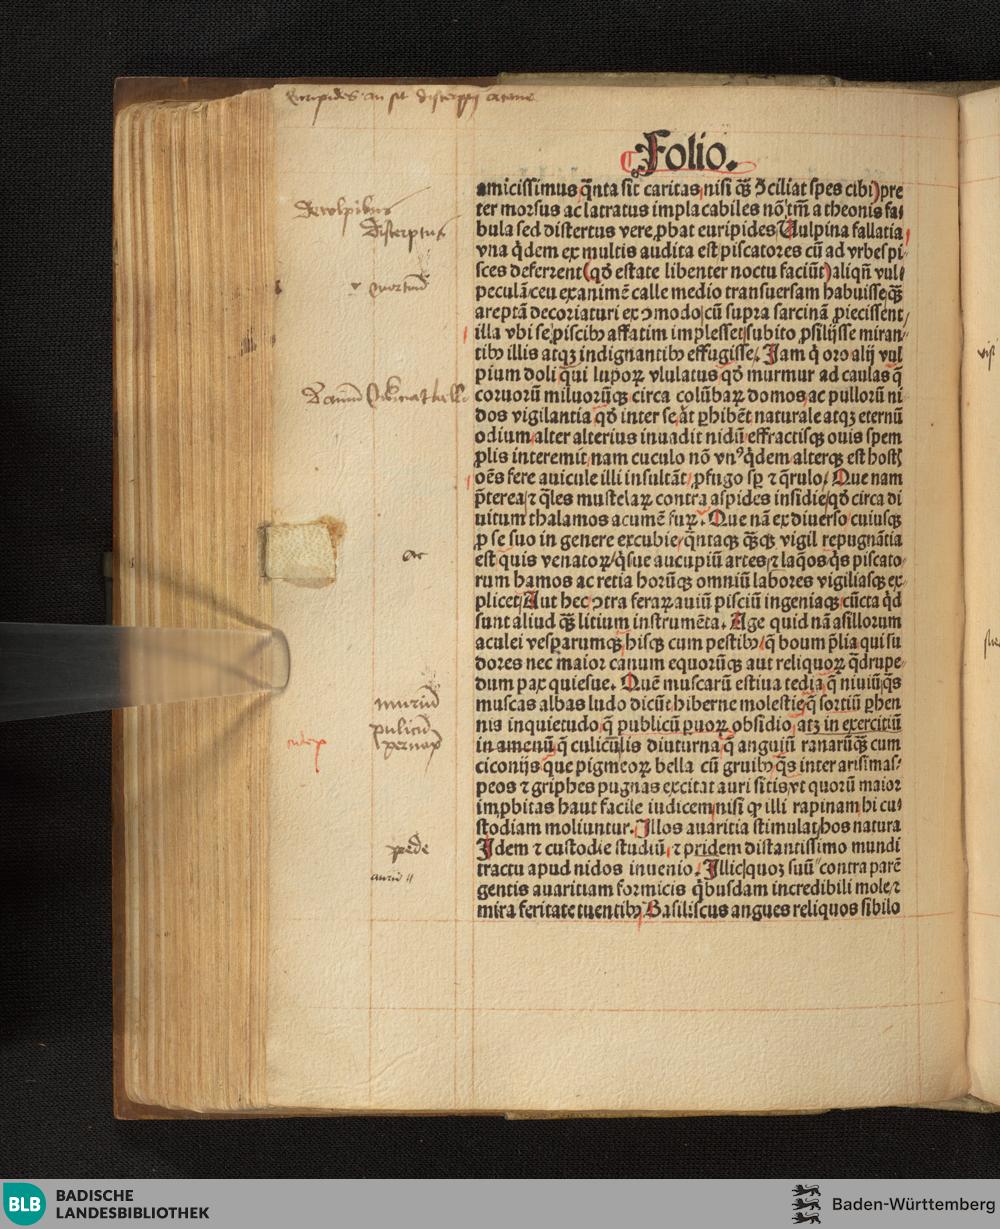 Folio.
amicissimus q̄nta sit caritas nisi q̄ꝫ ꝯciliat spes cibi) pre
ter morsus ac latratus implacabiles nō tm̄ a theonis fa⸗
bula sed distertus vere ꝓbat euripides Uulpina fallatia
vna q̇dem ex multis audita est piscatores cū ad vrbes pi⸗
sces deferrent (qđ estate libenter noctu faciūt) aliqn̄ vul⸗
peculā ceu exanimē calle medio transuersam habuisse qꝫ
areptā decoriaturi ex ꝯmodo cū supra sarcinā ꝓiecissent
illa vbi se piscibꝰ affatim implesset subito ꝓsilijsse miran⸗
tibꝰ illis atqꝫ indignantibꝰ effugisse. Jam q̇ oro alij vul
pium doli q̄ ui lupoꝝ vlulatus qđ murmur ad caulas q̄
coruorū miluorūqꝫ circa colūbaꝝ domos ac pullorū ni
dos vigilantia qđ inter se āt ꝑhibēt naturale atqꝫ eternū
odium alter alterius inuadit nidū effractisqꝫ ouis spem
ꝓlis interemit nam cuculo nō vnꝰ q̇dem alterqꝫ est hostꝭ
oēs fere auicule illi insultāt ꝓfugo sꝑ ⁊ q̄rulo. Que nam
p̄terea ⁊ q̄les mustelaꝝ contra aspides insidie qđ circa di
uitum thalamos acumē fuꝝ. Que nā ex diuerso cuiusqꝫ
ꝓ se suo in genere excubie q̄ntaqꝫ q̄qꝫ vigil repugnātia
est quis venatoꝝ q̇sue aucupiū artes ⁊ laq̄os q̇s piscato⸗
rum hamos ac retia horūqꝫ omniū labores vigiliasqꝫ ex
plicet Aut hec ꝯtra feraꝝ auiū pisciū ingeniaqꝫ cūcta q̇d
sunt aliud q̄ꝫ litium instrumēta. Age quid nā asillorum
aculei vesparumqꝫ hisqꝫ cum pestibꝰ q̄ boum p̄lia qui su
dores nec maior canum equorūqꝫ aut reliquoꝝ q̄drupe⸗
dum pax quiesue. Quē muscarū estiua tedia q̄ niuiū q̄s
muscas albas ludo dicūt hiberne molestie q̄ sortiū ꝑhen
nis inquietudo q̄ publicū puoꝝ obsidio atꝫ in exercitiū
in amenū q̄ culiculis diuturna q̄ anguiū ranarūqꝫ cum
ciconijs que pigmeoꝝ bella cū gruibꝰ q̄s inter arismas⸗
peos ⁊ griphes pugnas excitat auri sitis vt quorū maior
imꝓbitas haut facile iudicem nisi ꝙ illi rapinam hi cu⸗
stodiam moliuntur. Illos auaritia stimulat hos natura
Idem ⁊ custodie studiū ⁊ pridem distantissimo mundi
tractu apud nidos inuenio. Illic quoꝫ suū contra parē
gentis auaritiam formicis q̇busdam incredibili mole ⁊
mira feritate tuentibꝰ Basiliscus angues reliquos sibilo
Distertus
ac
pede
BLB
BADISCHE
LANDESBIBLIOTHEK
Baden-Württemberg